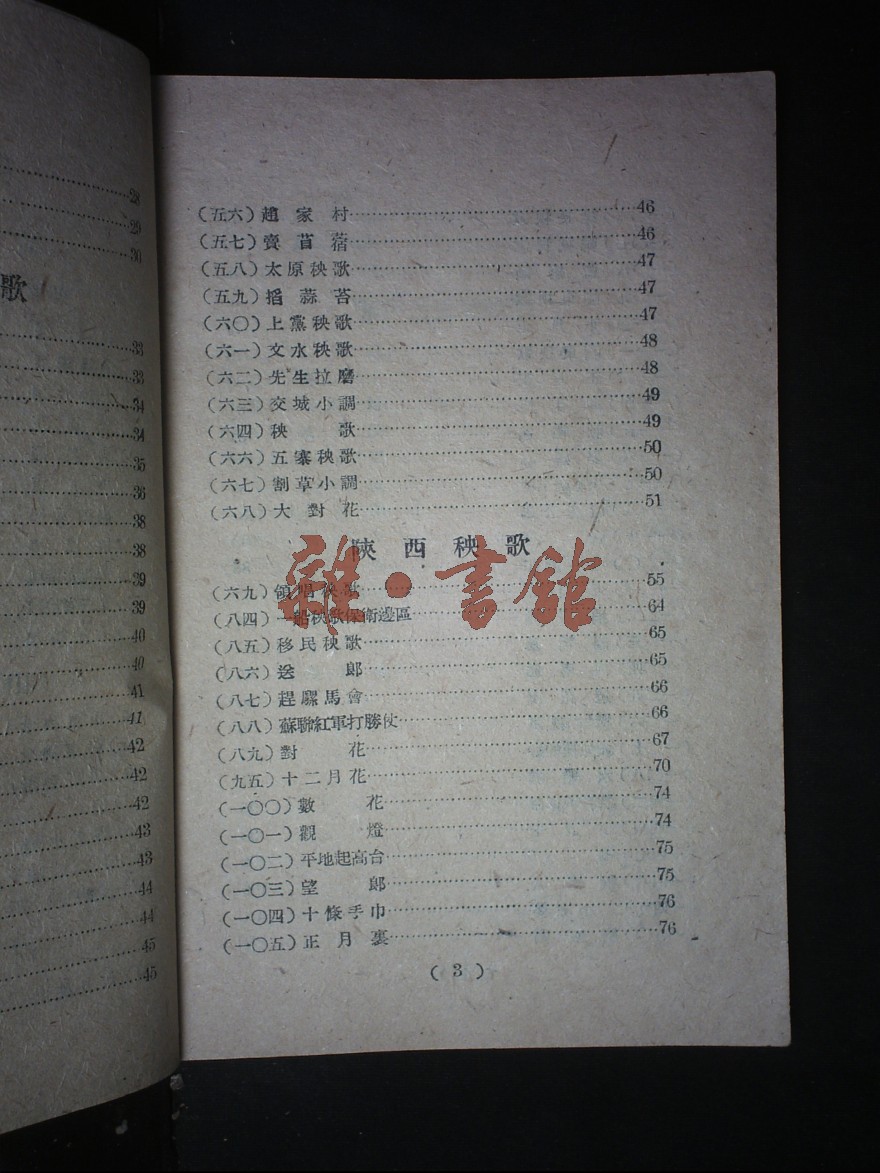 28
29
30
歌
33
33
34
34
35
36
38
38
39
39
40
40
41
41
42
42
42
43
43
44
44
45
45
(五六)趙家村 46
(五七)賣苜蓿 46
(五八)太原秧歌 47
(五九)搯蒜苔 47
(六〇)上黨秧歌 47
(六一)文水秧歌 48
(六二)先生拉磨 48
(六三)交城小調 49
(六四)秧歌 49
(六六)五寨秧歌 50
(六七)割草小調 50
(六八)大對花 51
陝西秧歌
(六九)領唱秧歌 55
(八四)一船秧歌保衛邊區 64
(八五)移民秧歌 65
(八六)送郎 65
(八七)趕騾馬會 66
(八八)蘇聯紅軍打勝仗 66
(八九)對花 67
(九五)十二月花 70
(一〇〇)數花 74
(一〇一)觀燈 74
(一〇二)平地起高台 75
(一〇三)望郎 75
(一〇四)十條手巾 76
(一〇五)正月裏 76
(3)
雜·書館